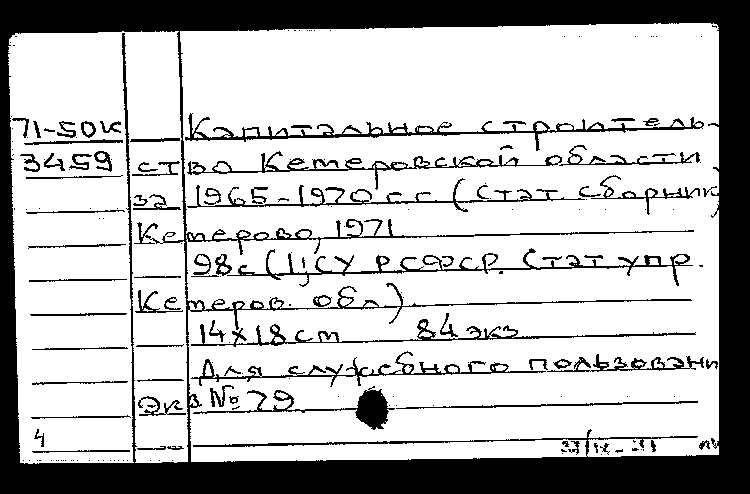 71-50к Капитальное строитель-
3459 ство Кемеровской области
за 1965-1970 г г (Стат сборник)
Кемерово, 1971
98с (ЦСУ РСФСР. Стат упр.
Кемеров. обл).
14х18 cm 84 экз
Для служебного пользовани
Экз № 79
4